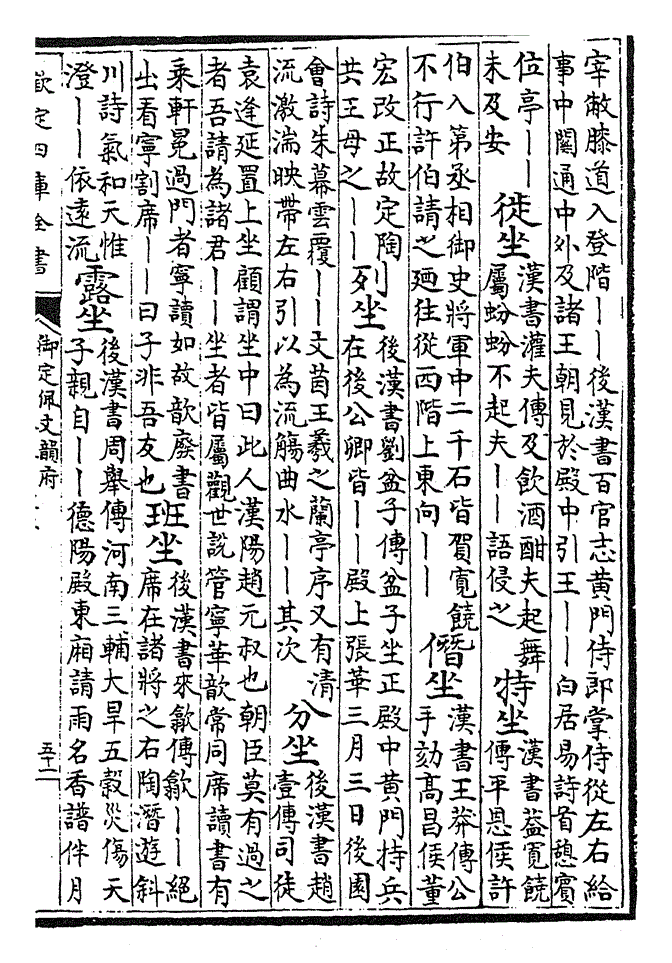 宰敝膝道入登階丨丨後漢書百官志黄門侍郎掌侍從左右給
事中關通中外及諸王朝見於殿中引王丨丨白居易詩首憩賓
位亭丨丨
未及安
徙坐
漢書灌夫傳及飲酒酣夫起舞
屬蚡蚡不起夫丨丨語侵之
特坐
漢書葢寛饒
傳平恩侯許
伯入第丞相御史將軍中二千石皆賀寛饒
不行許伯請之廼往從西階上東向丨丨
僭坐
漢書王莽傳公
手劾高昌侯董
宏改正故定陶
共王母之丨丨
列坐
後漢書劉盆子傳盆子坐正殿中黄門持兵
在後公卿皆丨丨殿上張華三月三日後園
會詩朱幕雲覆丨丨文茵王羲之蘭亭序又有清
流激湍映帶左右引以為流觴曲水丨丨其次
分坐
後漢書趙
壹傳司徒
袁逢延置上坐顧謂坐中曰此人漢陽趙元叔也朝臣莫有過之
者吾請為諸君丨丨坐者皆屬觀世說管寧華歆常同席讀書有
乘軒冕過門者寧讀如故歆廢書
出看寧割席丨丨曰子非吾友也
班坐
後漢書來歙傳歙丨丨絕
席在諸將之右陶潛遊斜
川詩氣和天惟
澄丨丨依遠流
露坐
後漢書周舉傳河南三輔大旱五穀災傷天
子親自丨丨德陽殿東廂請雨名香譜伴月
欽定四庫全書
御定佩文韻府
五十二